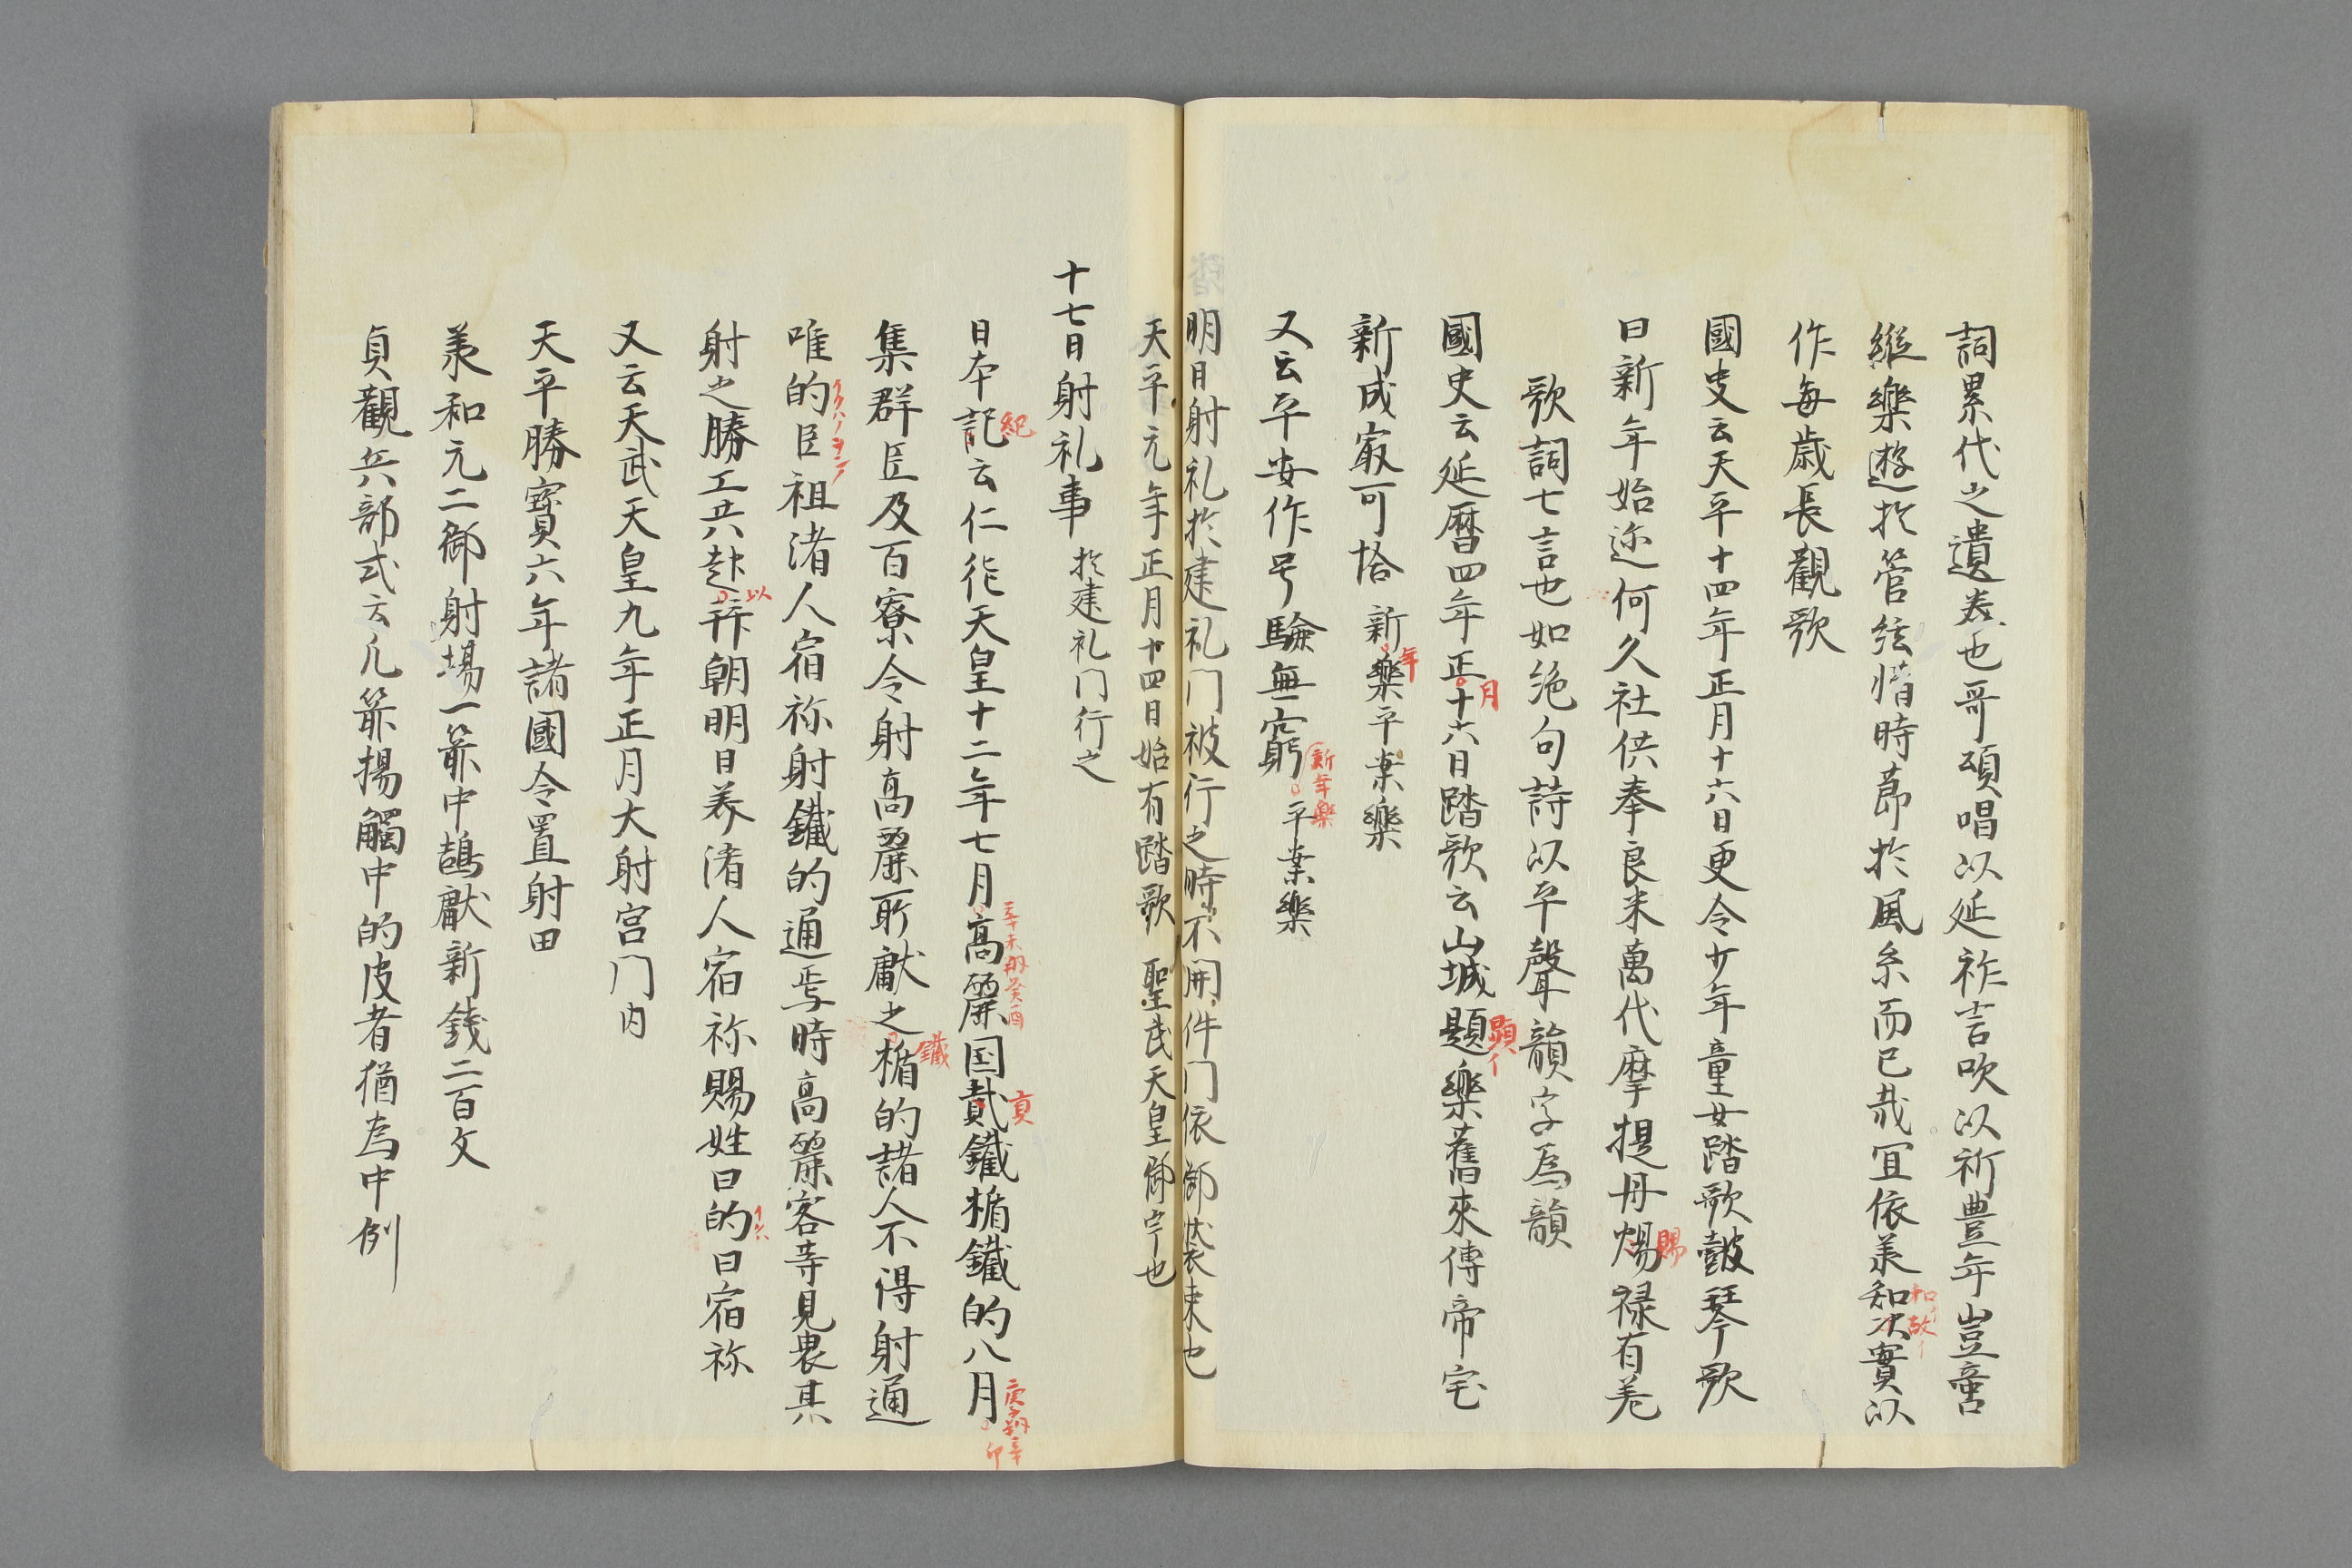 詞累代之遺美也哥頌唱以延祚吉吹以祈豊年豈啻
縦樂遊於管絃惜時莭於風糸而已哉冝依羕知次實以
和イ
故イ
作每歳長觀歌
國史云天平十四年正月十六日更令少年童女踏歌皷琴歌
曰新年始迩何久社供奉良米萬代摩提丹惕禄有差
賜
歌詞七言也如絶句詩以平聲韻字爲韻
國史云延暦四年正十六日踏歌云山城題樂舊來傳帝宅
月
顕イ
新成㝡可
新樂平
樂
年
又云平安作号驗無窮
平
樂
新年樂
明日射礼於建礼门被行之時不開件门依御装束也
天平元年正月十四日始有踏歌 聖武天皇御宇也
十七日射礼事 於建礼门行之
日本記云仁徳天皇十二年七月高麗国貮鐵楯鐵的八月
紀
辛未朔癸酉
貢
庚子朔辛
卯
集群臣及百寮令射高麗所獻之楯的諸人不得射通
鐵
唯的臣祖渚人宿祢射鐵的通焉時高麗客等見畏其
イクハノヲミノ
射之勝工共赴拜朝明日羙渚人宿祢賜姓曰的曰宿祢
以
イクハ
又云天武天皇九年正月大射宫门内
天平勝寳六年諸國令置射田
羕和元二御射場一箭中鵠獻新錢二百文
貞觀兵部式云凡箭揚觸中的皮者猶為中例